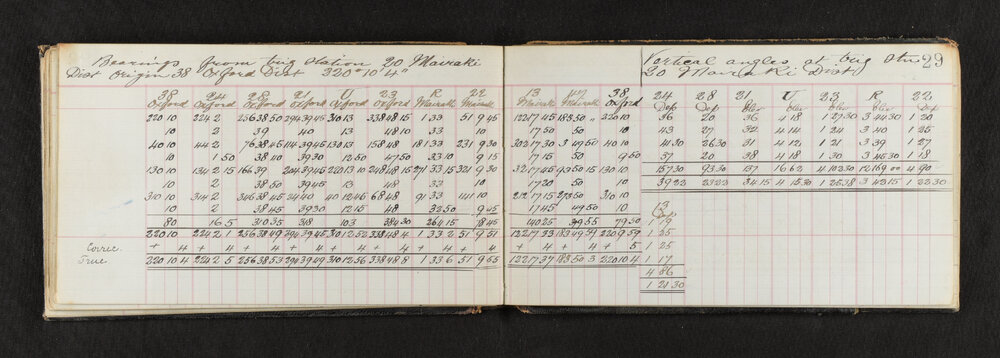 Bearings from trig station 20 Mairaki
Dist Origin 38 Oxford Dist 320° 10' 4"
38 24 28 21 U 23 R 22
Oxford Oxford Oxford Oxford Oxford Oxford Mairaki Mairaki
220 10 224 2 256 38 50 294 39 45 310 13 338 48 15 1 33 51 9 45
10 2 39 40 13 48 10 33 10
40 10 44 2 76 38 45 114 39 45 130 13 158 48 181 33 231 9 30
10 1 50 38 40 39 30 12 50 47 50 33 10 9 15
130 10 134 2 15 166 39 204 39 45 220 13 248 48 15 271 33 15 321 9 30
10 2 38 50 39 45 13 48 33 10
310 10 314 2 346 38 45 24 40 40 12 45 68 48 91 33 141 10
10 2 38 45 39 30 12 45 48 32 50 9 45
80 16 5 310 35 318 103 384 30 264 15 78 45
220 10 224 2 1 256 38 49 294 39 45 310 12 52 338 48 4 1 33 2 51 9 51
Correc. + 4 + 4 + 4 + 4 + 4 + 4 + 4 + 4
True 220 10 4 224 2 5 256 38 53 294 39 49 310 12 56 338 48 8 1 33 6 51 9 55
13 38
Mairaki Mairaki Oxford
122 17 45 183 50 " 220 10
17 50 50 10
302 17 30 3 49 50 40 10
17 15 50 9 50
32 17 45 93 50 15 130 10
17 30 50 10
212 17 15 273 50 310 10
17 45 49 50 10
140 25 39 55 79 50
122 17 33 183 49 59 220 9 59
+ 4 + 4 + 5
122 17 37 183 50 3 220 10 4
29
Vertical angles at trig Stn
20 Mairaki Dist
24 28 21 U 23 R 22
Dep Dep Elev Elev Elev Elev Dep
36 20 36 4 18 1 27 30 3 44 30 1 20
43 27 32 4 14 1 24 3 40 1 25
41 30 26 30 31 4 12 1 21 3 39 1 27
37 20 38 4 18 1 30 3 45 30 1 18
157 30 93 30 137 16 62 4 102 30 12 169 00 4 90
39 22 23 23 34 15 4 15 30 1 25 38 3 42 15 1 22 30
13
Dep
1 19
1 25
1 25
1 17
4 86
1 21 30